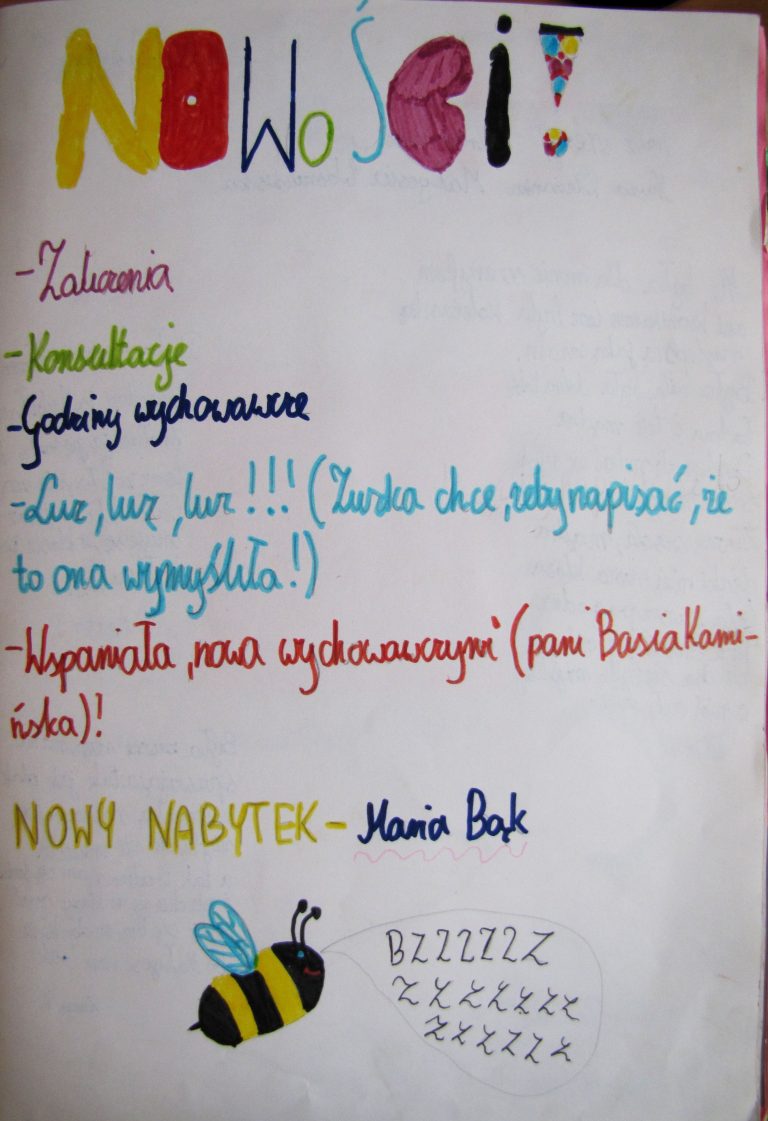 NOWOŚCI!
-Zaliczenia
-Konsultacje
-Godziny wychowawcze
-Luz, luz, luz!!! (Zuzka chce, żeby napisać, że
to ona wymyśliła!)
-Wspaniała, nowa wychowawczyni (pani Basia Kami-
ńska)!
NOWY NABYTEK- Mania Bąk
BZZZZZZ
ZZZZZZZ
ZZZZZZ